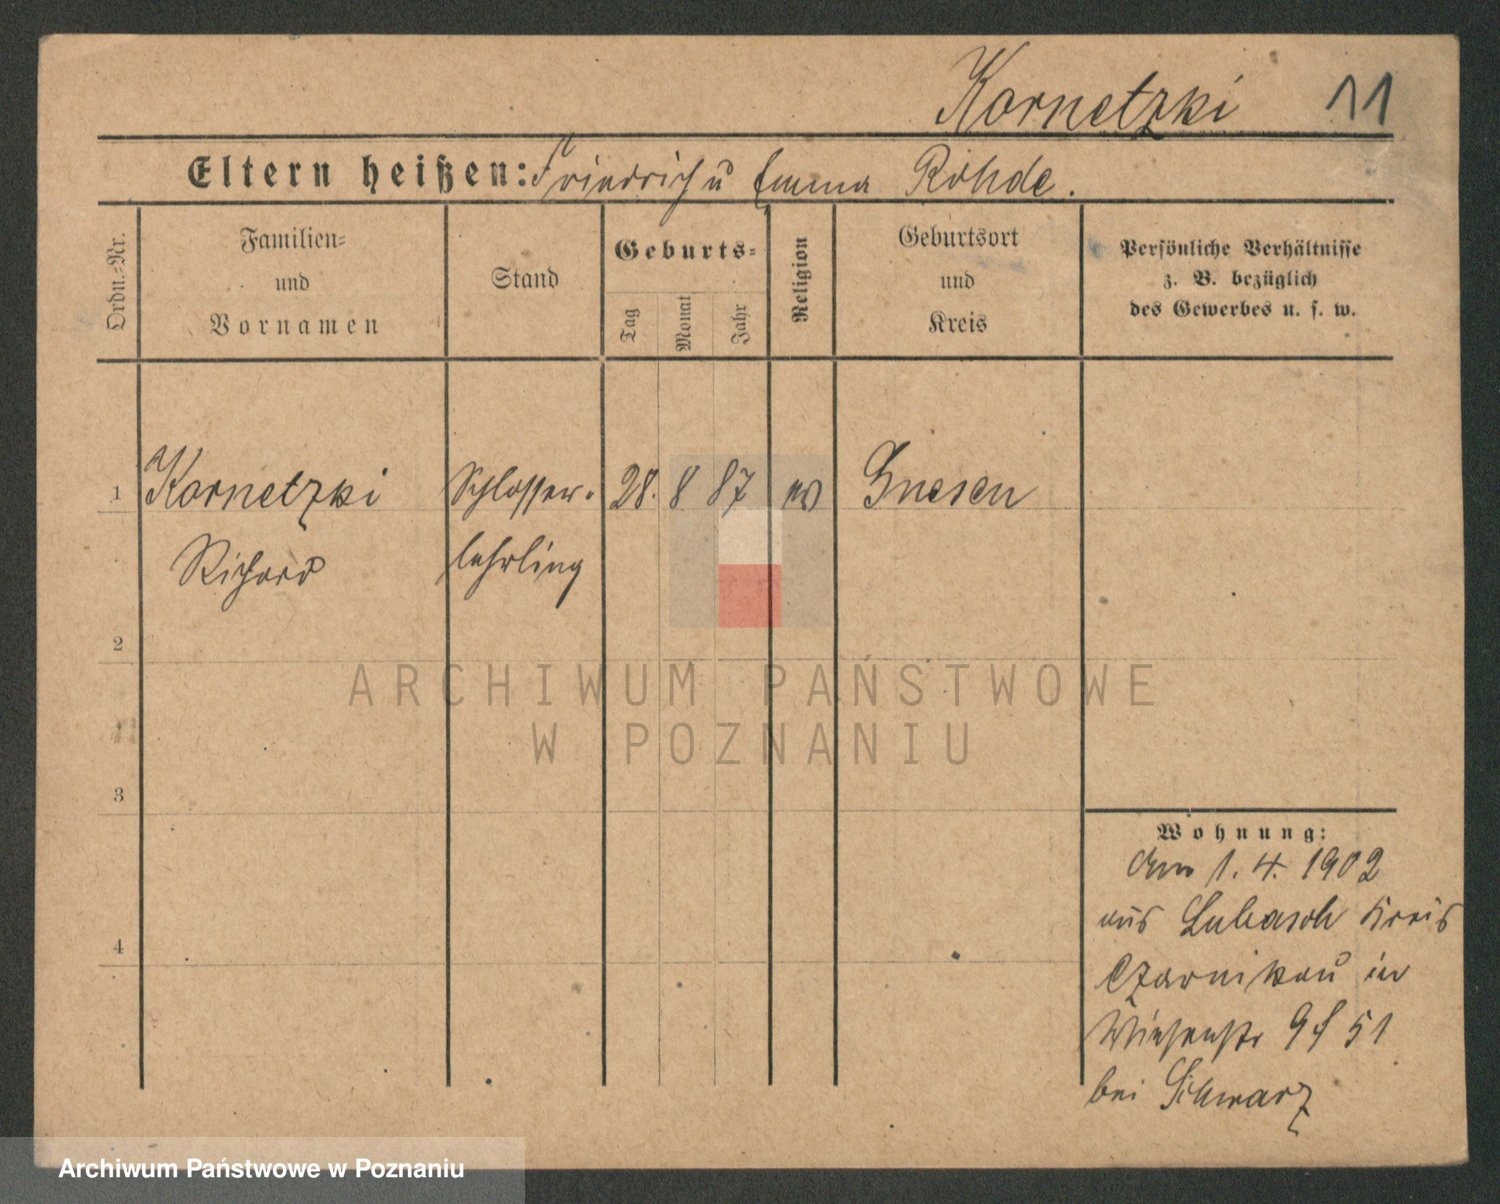 Kornetzki 11
Eltern heißen: Friedrich u Emma Rohde.
Ordn.-Nr.
Familien-
und
Vornamen
Stand
Geburts-
Tag
Monat
Jahr
Religion
Geburtsort
und
Kreis
Persönliche Verhältnisse
z. B. bezüglich
des Gewerbes u. s. w.
1 Kornetzki Schlosser- 28. 8 87 ev Gnesen
Richard lehrling
2
3
4
Wohnung:
Am 1. 4. 1902
aus Lubasch Kreis
Czarnikau in
Wiesenstr 9 f 51
bei Schwarz
ARCHIWUM PAŃSTWOWE
W POZNANIU
Archiwum Państwowe w Poznaniu